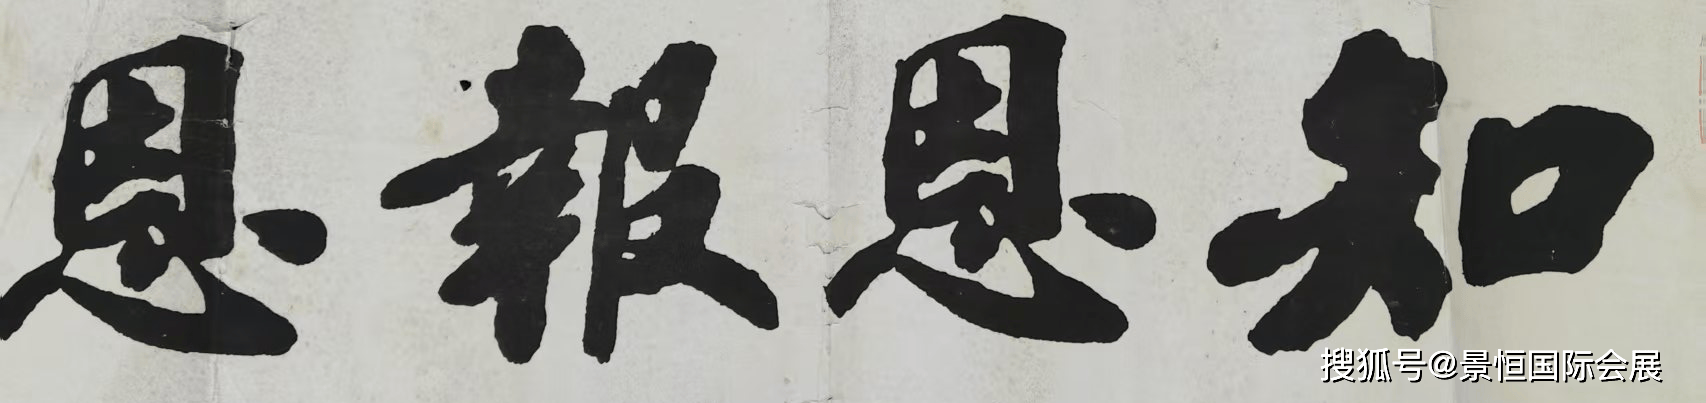 知恩報恩
搜狐号@景恒国际会展